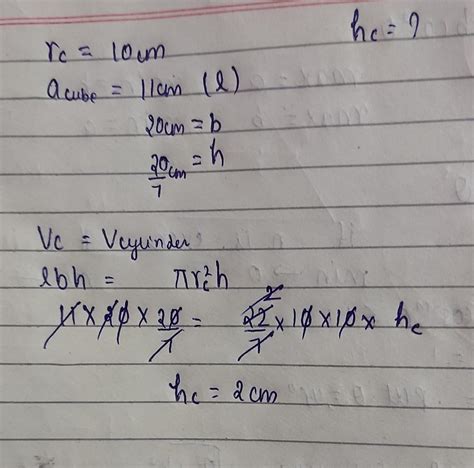 rc = 10cm hc = ?
acube = 11cm (l)
20cm = b
20/7 cm = h
Vc = Vcylinder
lbh = πrc²h
11 × 20 × 20/7 = 22/7 2 × 10 × 10 × hc
hc = 2cm